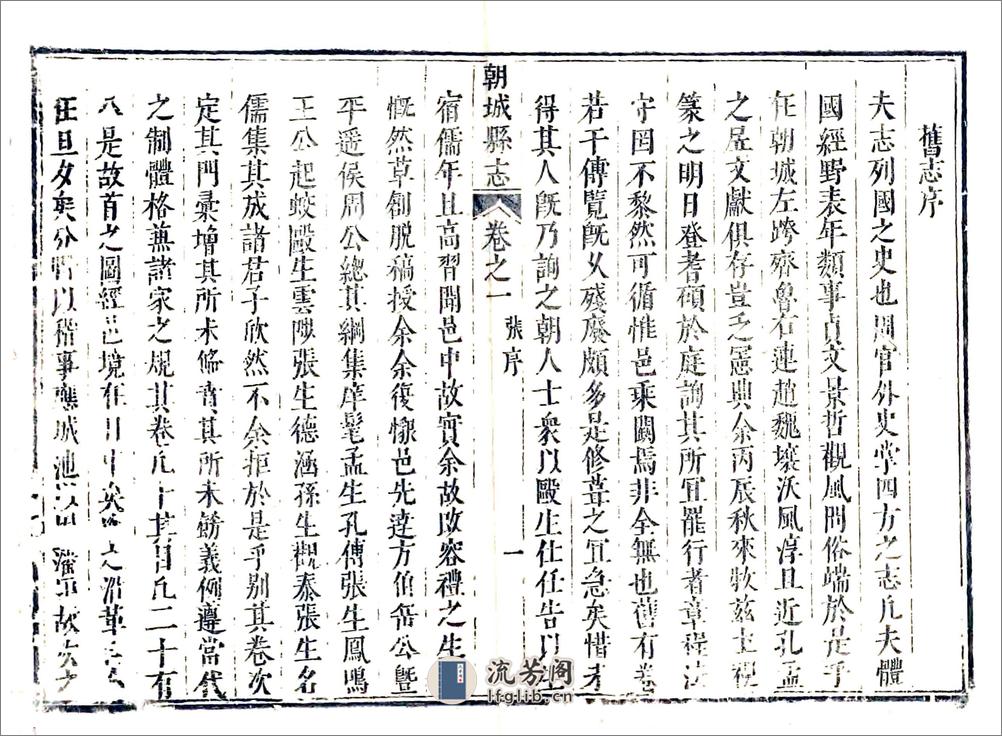 舊志序
夫志列國之史也周官外史掌四方之志凡夫體
國經野表年類事貞文景哲觀風問俗端於是乎
在朝城左跨齊魯右連趙魏壤沃風淳且近孔孟
之居文獻俱存豈乏憲典余丙辰秋來牧茲土視
篆之明日登耆碩於庭詢其所宜罷行者章程法
守罔不黎然可循惟邑乘闕焉非全無也舊有卷
若干傳覽既久殘廢頗多是修葺之宜急矣惜未
得其人既乃詢之朝人士衆以毆生仕任告以生
朝城縣志
卷之一
張序
一
宿儒年且高習聞邑中故實余故改容禮之生
慨然草創脫稿授余余復慷邑先達方伯岳公暨
平遥侯周公總其綱集庠髦孟生孔傳張生鳳鳴
王公起蛟毆生雲陟張生德涵孫生觀泰張生名
儒集其成諸君子欣然不余拒於是乎別其卷次
定其門彙增其所未脩賁其所未磅義例遵當代
之制體格兼諸家之規其卷凡十其目凡二十有
八是故首之圖經邑境在目中矣 之沿革
在旦夕矣分野以稽事應城池以 故次之
流芳阁
lfglib.cn